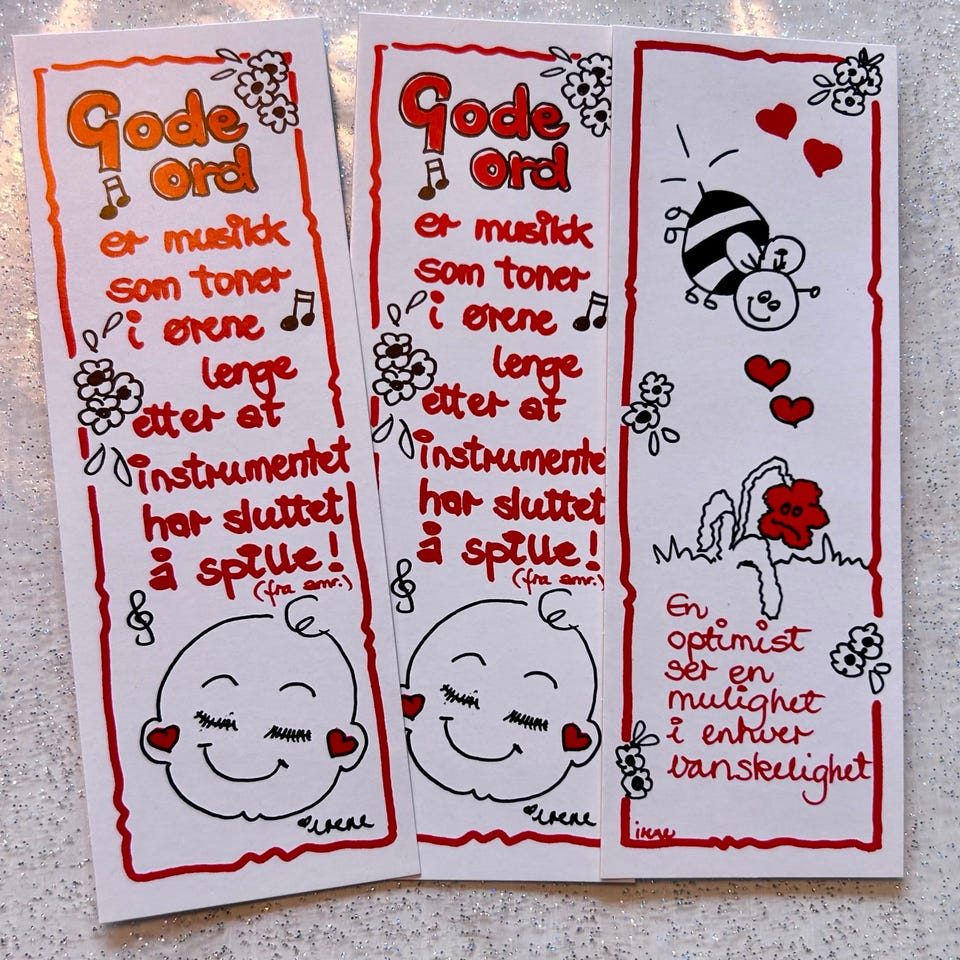 Gode
ord
er musikk
som toner
i ørene
lenge
etter at
instrumentet
har sluttet
å spille!
(fra amr.)
irene
Gode
ord
er musikk
som toner
i ørene
lenge
etter at
instrumente
har sluttet
å spille!
(fra amr.)
irene
En
optimist
ser en
mulighet
i enhver
vanskelighet
irene